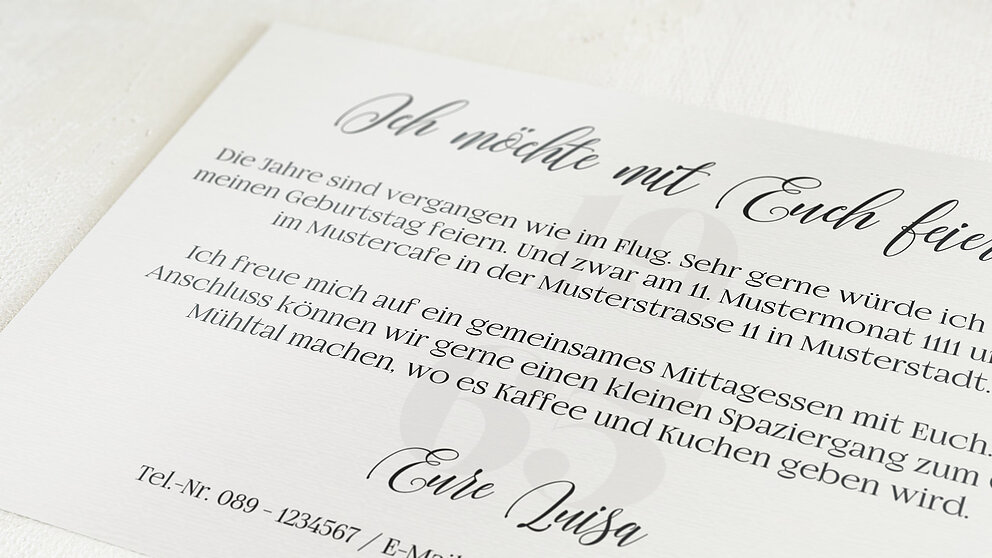 Ich möchte mit Euch feier
Die Jahre sind vergangen wie im Flug. Sehr gerne würde ich
meinen Geburtstag feiern. Und zwar am 11. Mustermonat 1111 u
im Mustercafe in der Musterstrasse 11 in Musterstadt.
Ich freue mich auf ein gemeinsames Mittagessen mit Euch.
Anschluss können wir gerne einen kleinen Spaziergang zum
Mühltal machen, wo es Kaffee und Kuchen geben wird.
Eure Luisa
Tel.-Nr. 089 - 1234567 / E-Mai